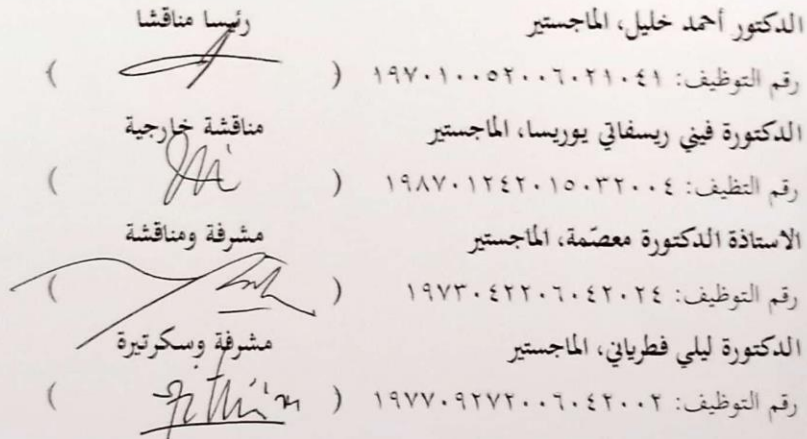 الدكتور أحمد خليل، الماجستير رئيسا مناقشا
رقم التوظيف: ١٩٧٠١٠٠٥٢٠٠٦٠٢١٠٤١ ( )
الدكتورة فيني ريسفاتي يوريسا، الماجستير مناقشة خارجية
رقم التظيف: ١٩٨٧٠١٢٤٢٠١٥٠٣٢٠٠٤ ( )
الاستاذة الدكتورة معصّمة، الماجستير مشرفة ومناقشة
رقم التوظيف: ١٩٧٣٠٤٢٢٠٠٦٠٤٢٠٢٤ ( )
الدكتورة ليلي فطرياني، الماجستير مشرفة وسكرتيرة
رقم التوظيف: ١٩٧٧٠٩٢٧٢٠٠٦٠٤٢٠٠٢ ( )